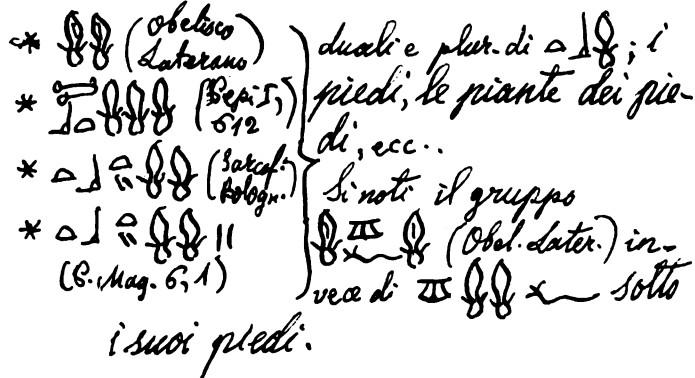 * (Obelisco
Laterano)
* (Pepi I,
612
* (Sarcof.
Bologn.)
*
(P. Mag. 6, 1)
duali e plur. di ; i
piedi, le piante dei pie-
di, ecc..
Si noti il gruppo
(Obel. Later.) in-
vece di sotto
i suoi piedi.